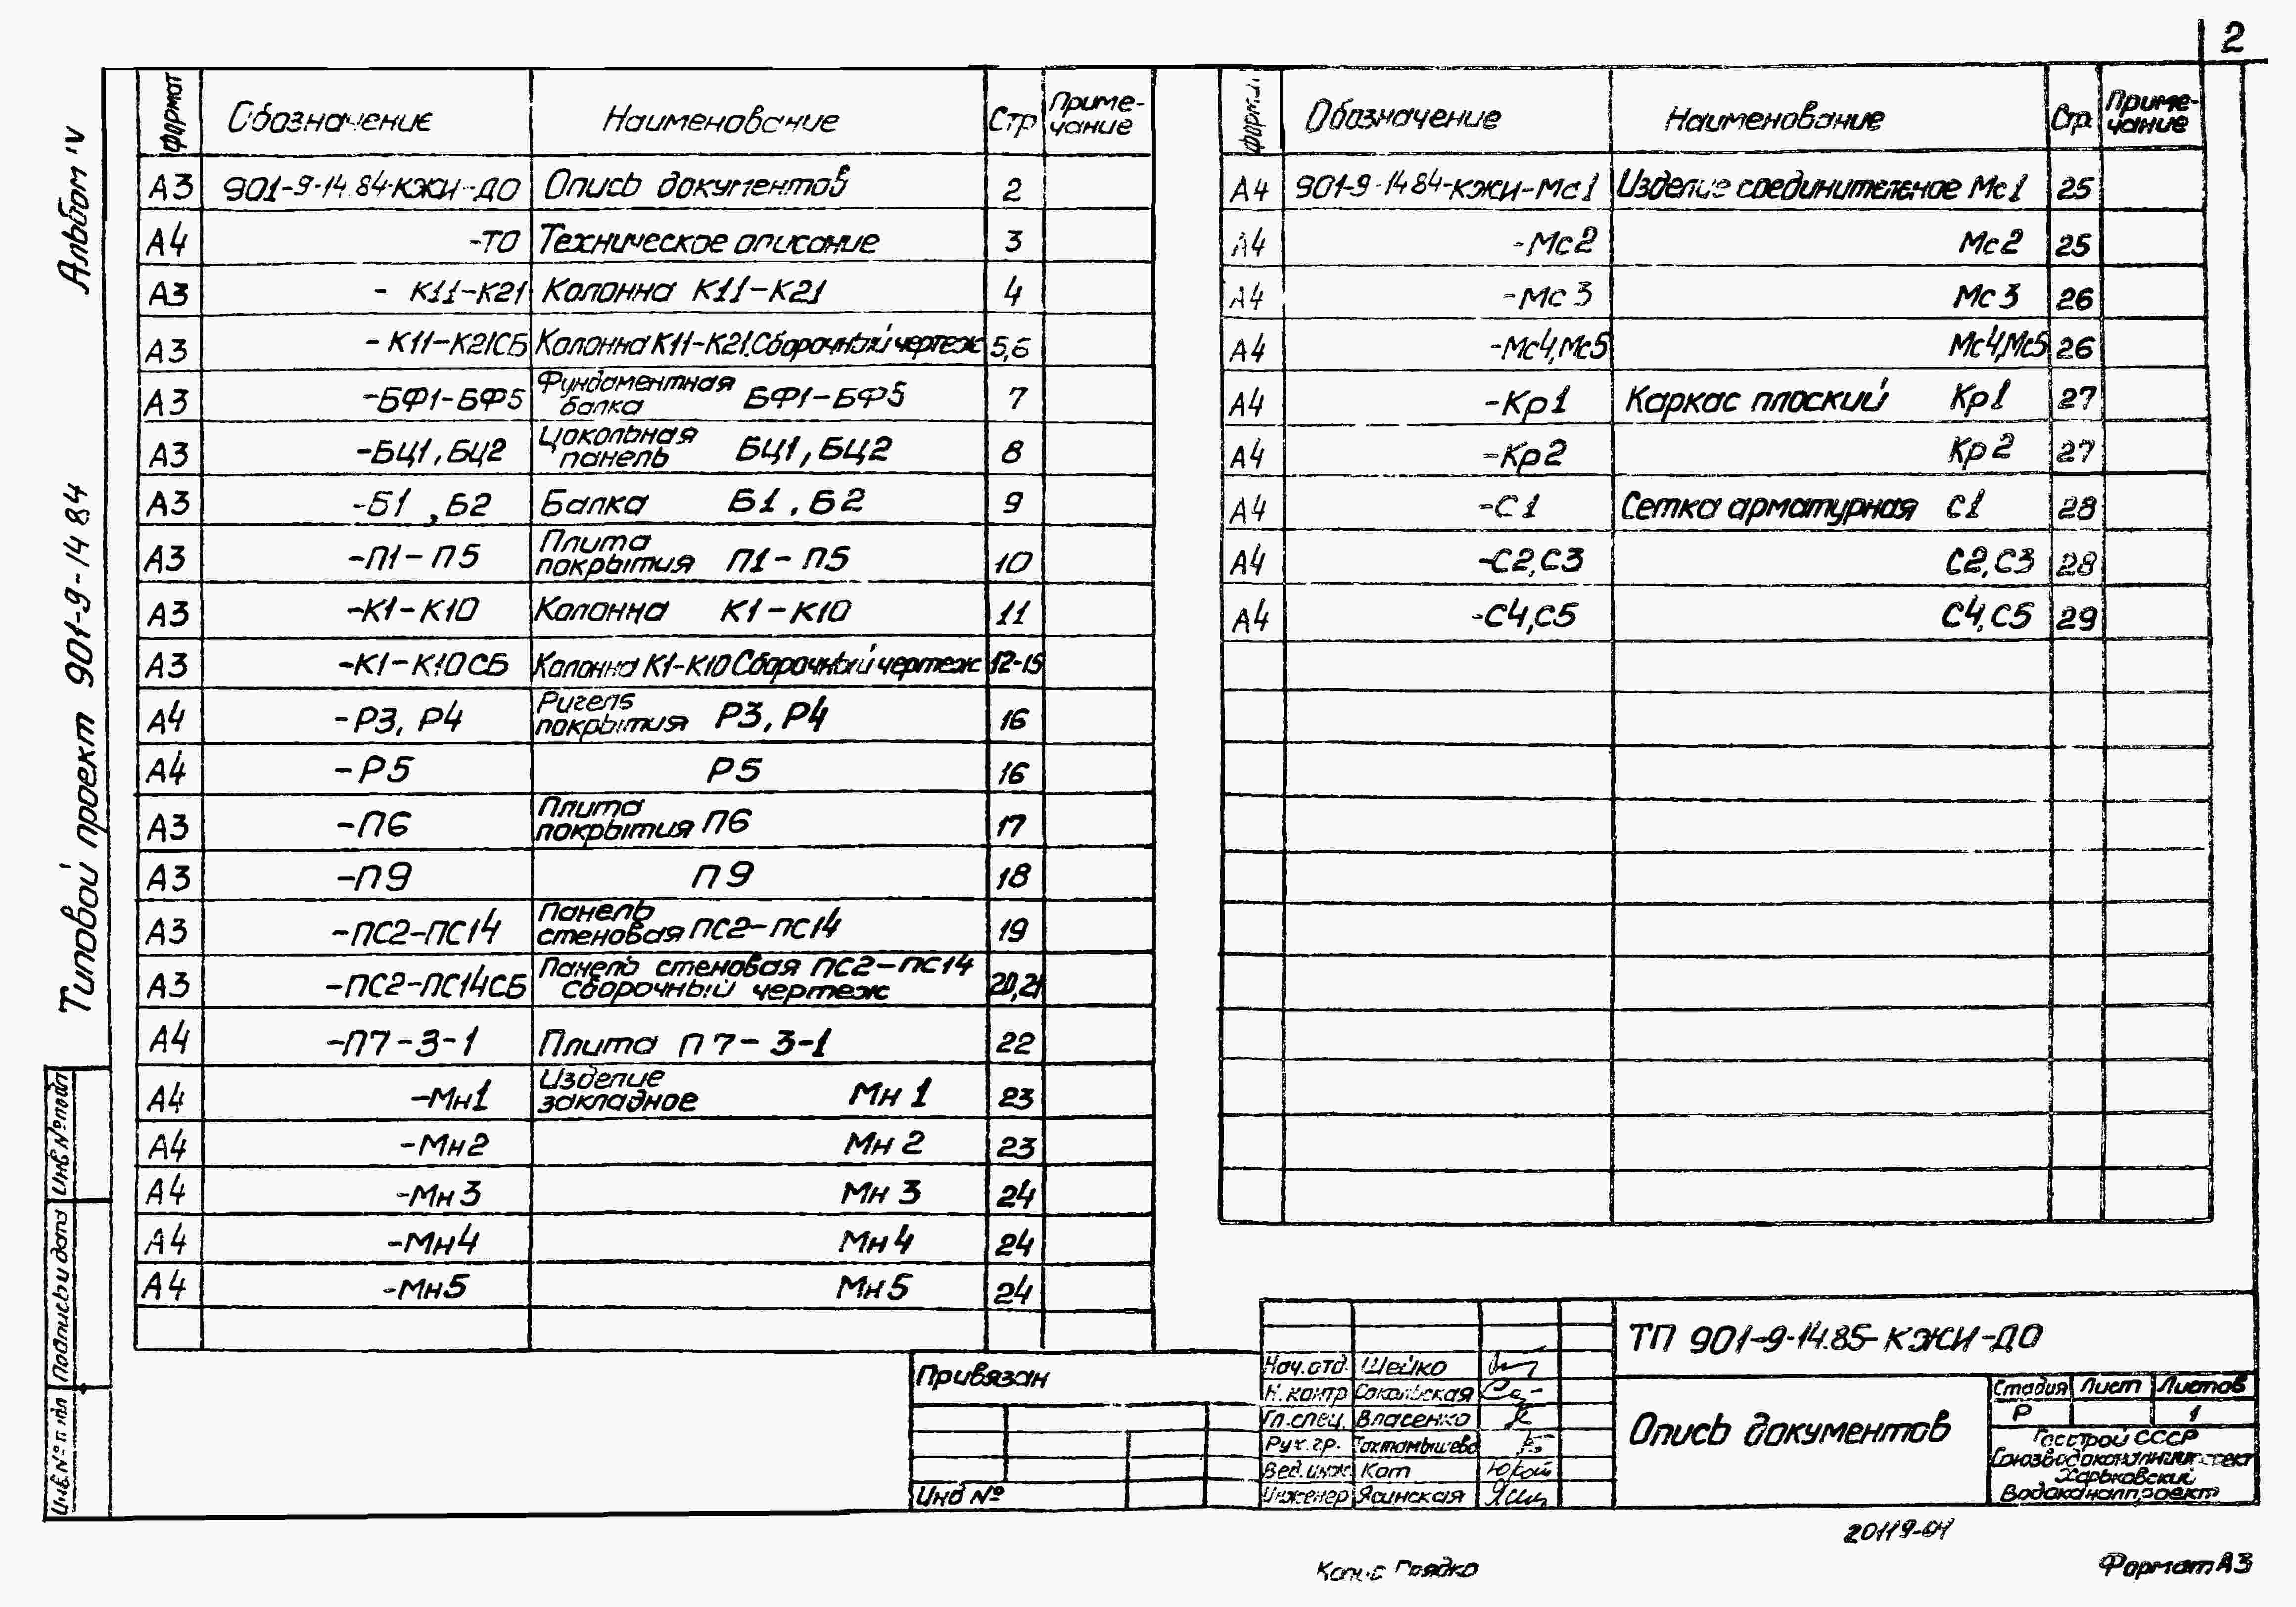 2
Альбом IV
Типовой проект 901-9-14 84
Формат Обозначение Наименование Стр Приме-чание
А3 901-9-14.84-КЖИ-ДО Опись документов 2
А4 -ТО Техническое описание 3
А3 - К11-К21 Колонна К11-К21 4
А3 - К11-К21СБ Колонна К11-К21.Сборочный чертеж 5,6
А3 -БФ1-БФ5 Фундаментная балка БФ1-БФ5 7
А3 -БЦ1,БЦ2 Цокольная панель БЦ1,БЦ2 8
А3 -Б1 ,Б2 Балка Б1,Б2 9
А3 -П1-П5 Плита покрытия П1-П5 10
А3 -К1-К10 Колонна К1-К10 11
А3 -К1-К10СБ Колонна К1-К10 Сборочный чертеж 12-15
А4 -Р3, Р4 Ригель покрытия Р3, Р4 16
А4 -Р5 Р5 16
А3 -П6 Плита покрытия П6 17
А3 -П9 П9 18
А3 -ПС2-ПС14 Панель стеновая ПС2-ПС14 19
А3 -ПС2-ПС14СБ Панель стеновая ПС2-ПС14 сборочный чертеж 20,21
А4 -П7-3-1 Плита П7-3-1 22
А4 -Мн1 Изделие закладное Мн 1 23
А4 -Мн2 Мн 2 23
А4 -Мн3 Мн 3 24
А4 -Мн4 Мн4 24
А4 -Мн5 Мн5 24
Обозначение Наименование Стр. Приме-чание
А4 901-9-14 84-КЖИ-Мс1 Изделие соединительное Мс1 25
А4 -Мс2 Мс2 25
А4 -Мс3 Мс3 26
А4 -Мс4,Мс5 Мс4,Мс5 26
А4 -Кр1 Каркас плоский Кр1 27
А4 -Кр2 Кр2 27
А4 -С1 Сетка арматурная С1 28
А4 -С2,С3 С2,С3 28
А4 -С4,С5 С4,С5 29
Инв.№ подл
Подпись и дата
Привязан
Инв №
Нач.отд. Шейко
Н.контр Сокольская
Гл.спец. Власенко
Рук.гр.
Вед.инж. Кот
Инженер Ясинская
ТП 901-9-14.85-КЖИ-ДО
Опись документов
Стадия Лист Листов
Р 1
Госстрой СССР
Харьковский
Водоканалпроект
20119-04
Грядко
Формат А3